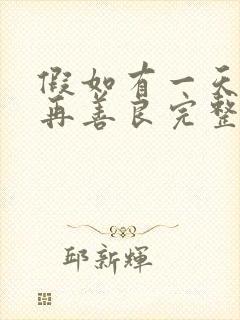 假如有一天
再善良完整
邱新輝